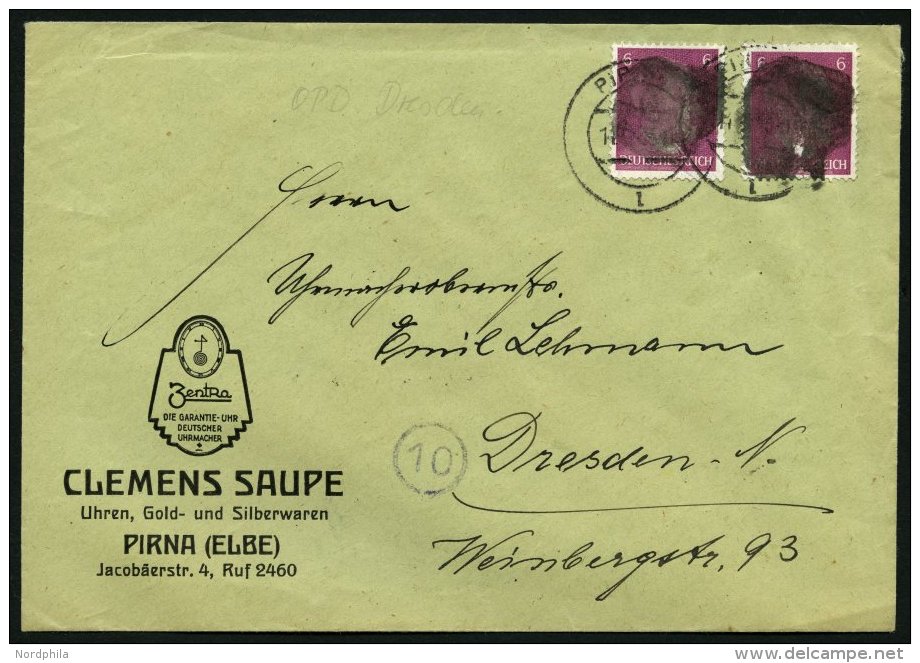 OPD Dresden.
6 6
DEUTSCHES REICH
6
REICH
1
1
Herrn
Uhrmacherobermstr.
Emil Lehmann
Dresden-N.
Weinbergstr. 93
10
Zentra
DIE GARANTIE-UHR
DEUTSCHER
UHRMACHER
CLEMENS SAUPE
Uhren, Gold- und Silberwaren
PIRNA (ELBE)
Jacobäerstr. 4, Ruf 2460
Nordphila
delcampe.net